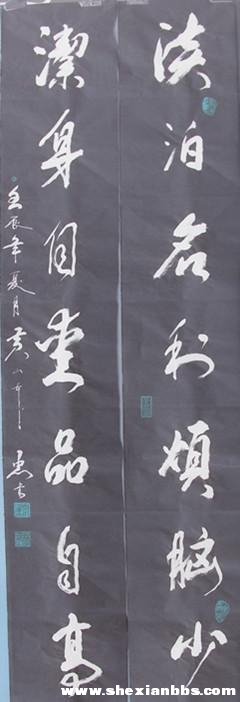 淡泊名利煩腦少
潔身自愛品自高
壬辰年夏月
www.shexianbbs.com